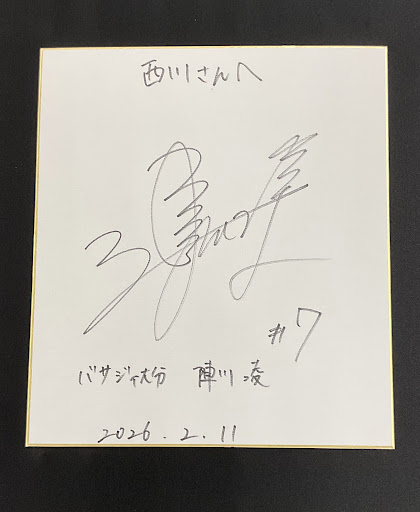 西川さんへ
#7
バサジィ大分 陣川 凌
2026.2.11